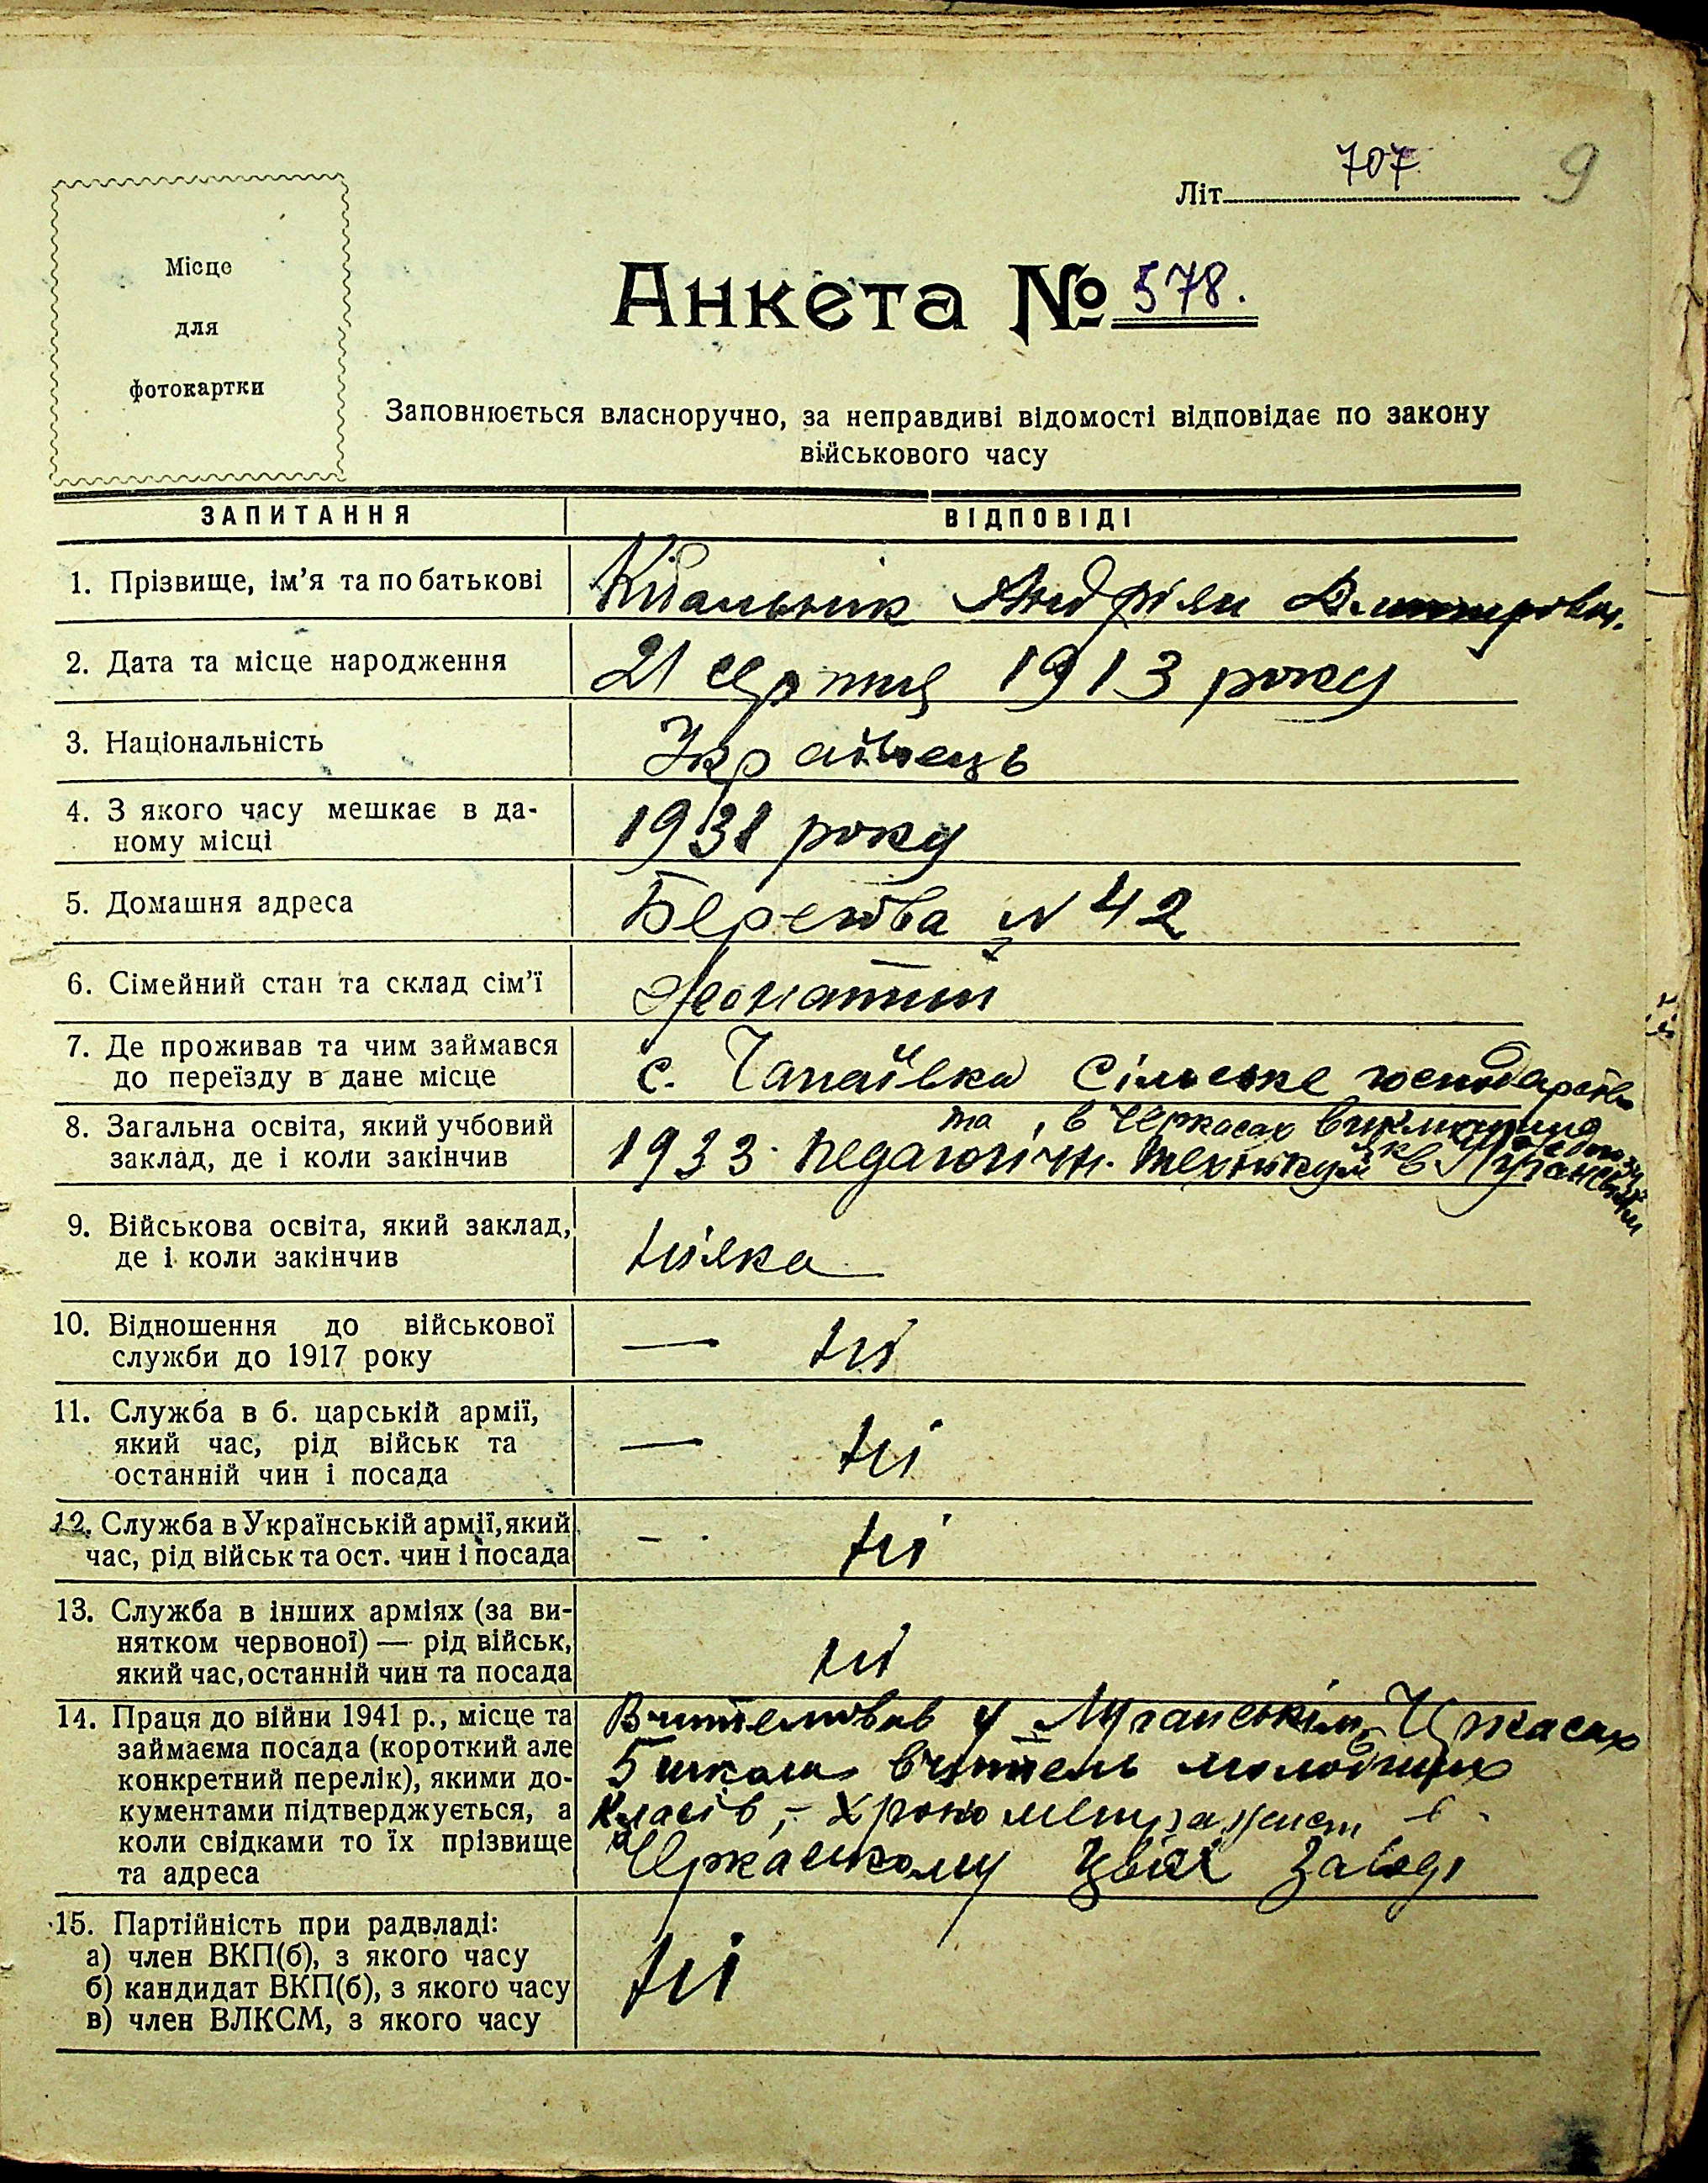 707
9
Літ
Місце
для
фотокартки
Анкета № 578.
Заповнюється власноручно, за неправдиві відомості відповідає по закону
військового часу
ЗАПИТАННЯ
ВІДПОВІДІ
1. Прізвище, ім’я та по батькові
Андріян
2. Дата та місце народження
21 серпня 1913 року
3. Національність
Українець
4. З якого часу мешкає в да-
ному місці
1931 року
5. Домашня адреса
Берегова № 42
6. Сімейний стан та склад сім’ї
Жонатий
7. Де проживав та чим займався
до переїзду в дане місце
с. Чапаївка Сільське господарство
8. Загальна освіта, який учбовий
заклад, де і коли закінчив
та, в Черкасах
1933 педагогічн. технікум в
9. Військова освіта, який заклад,
де і коли закінчив
ніяка
10. Відношення до військової
служби до 1917 року
— ні
11. Служба в б. царській армії,
який час, рід військ та
останній чин і посада
— ні
12. Служба в Українській армії, який
час, рід військ та ост. чин і посада
- . ні
13. Служба в інших арміях (за ви-
нятком червоної) — рід військ,
який час, останній чин та посада
ні
14. Праця до війни 1941 р., місце та
займаєма посада (короткий але
конкретний перелік), якими до-
кументами підтверджується, а
коли свідками то їх прізвище
та адреса
Вчителював у Черкасах
5 школа вчитель молодших
класів, - хронометражист в
Черкаському заводі
15. Партійність при радвладі:
а) член ВКП(б), з якого часу
б) кандидат ВКП(б), з якого часу
в) член ВЛКСМ, з якого часу
ні